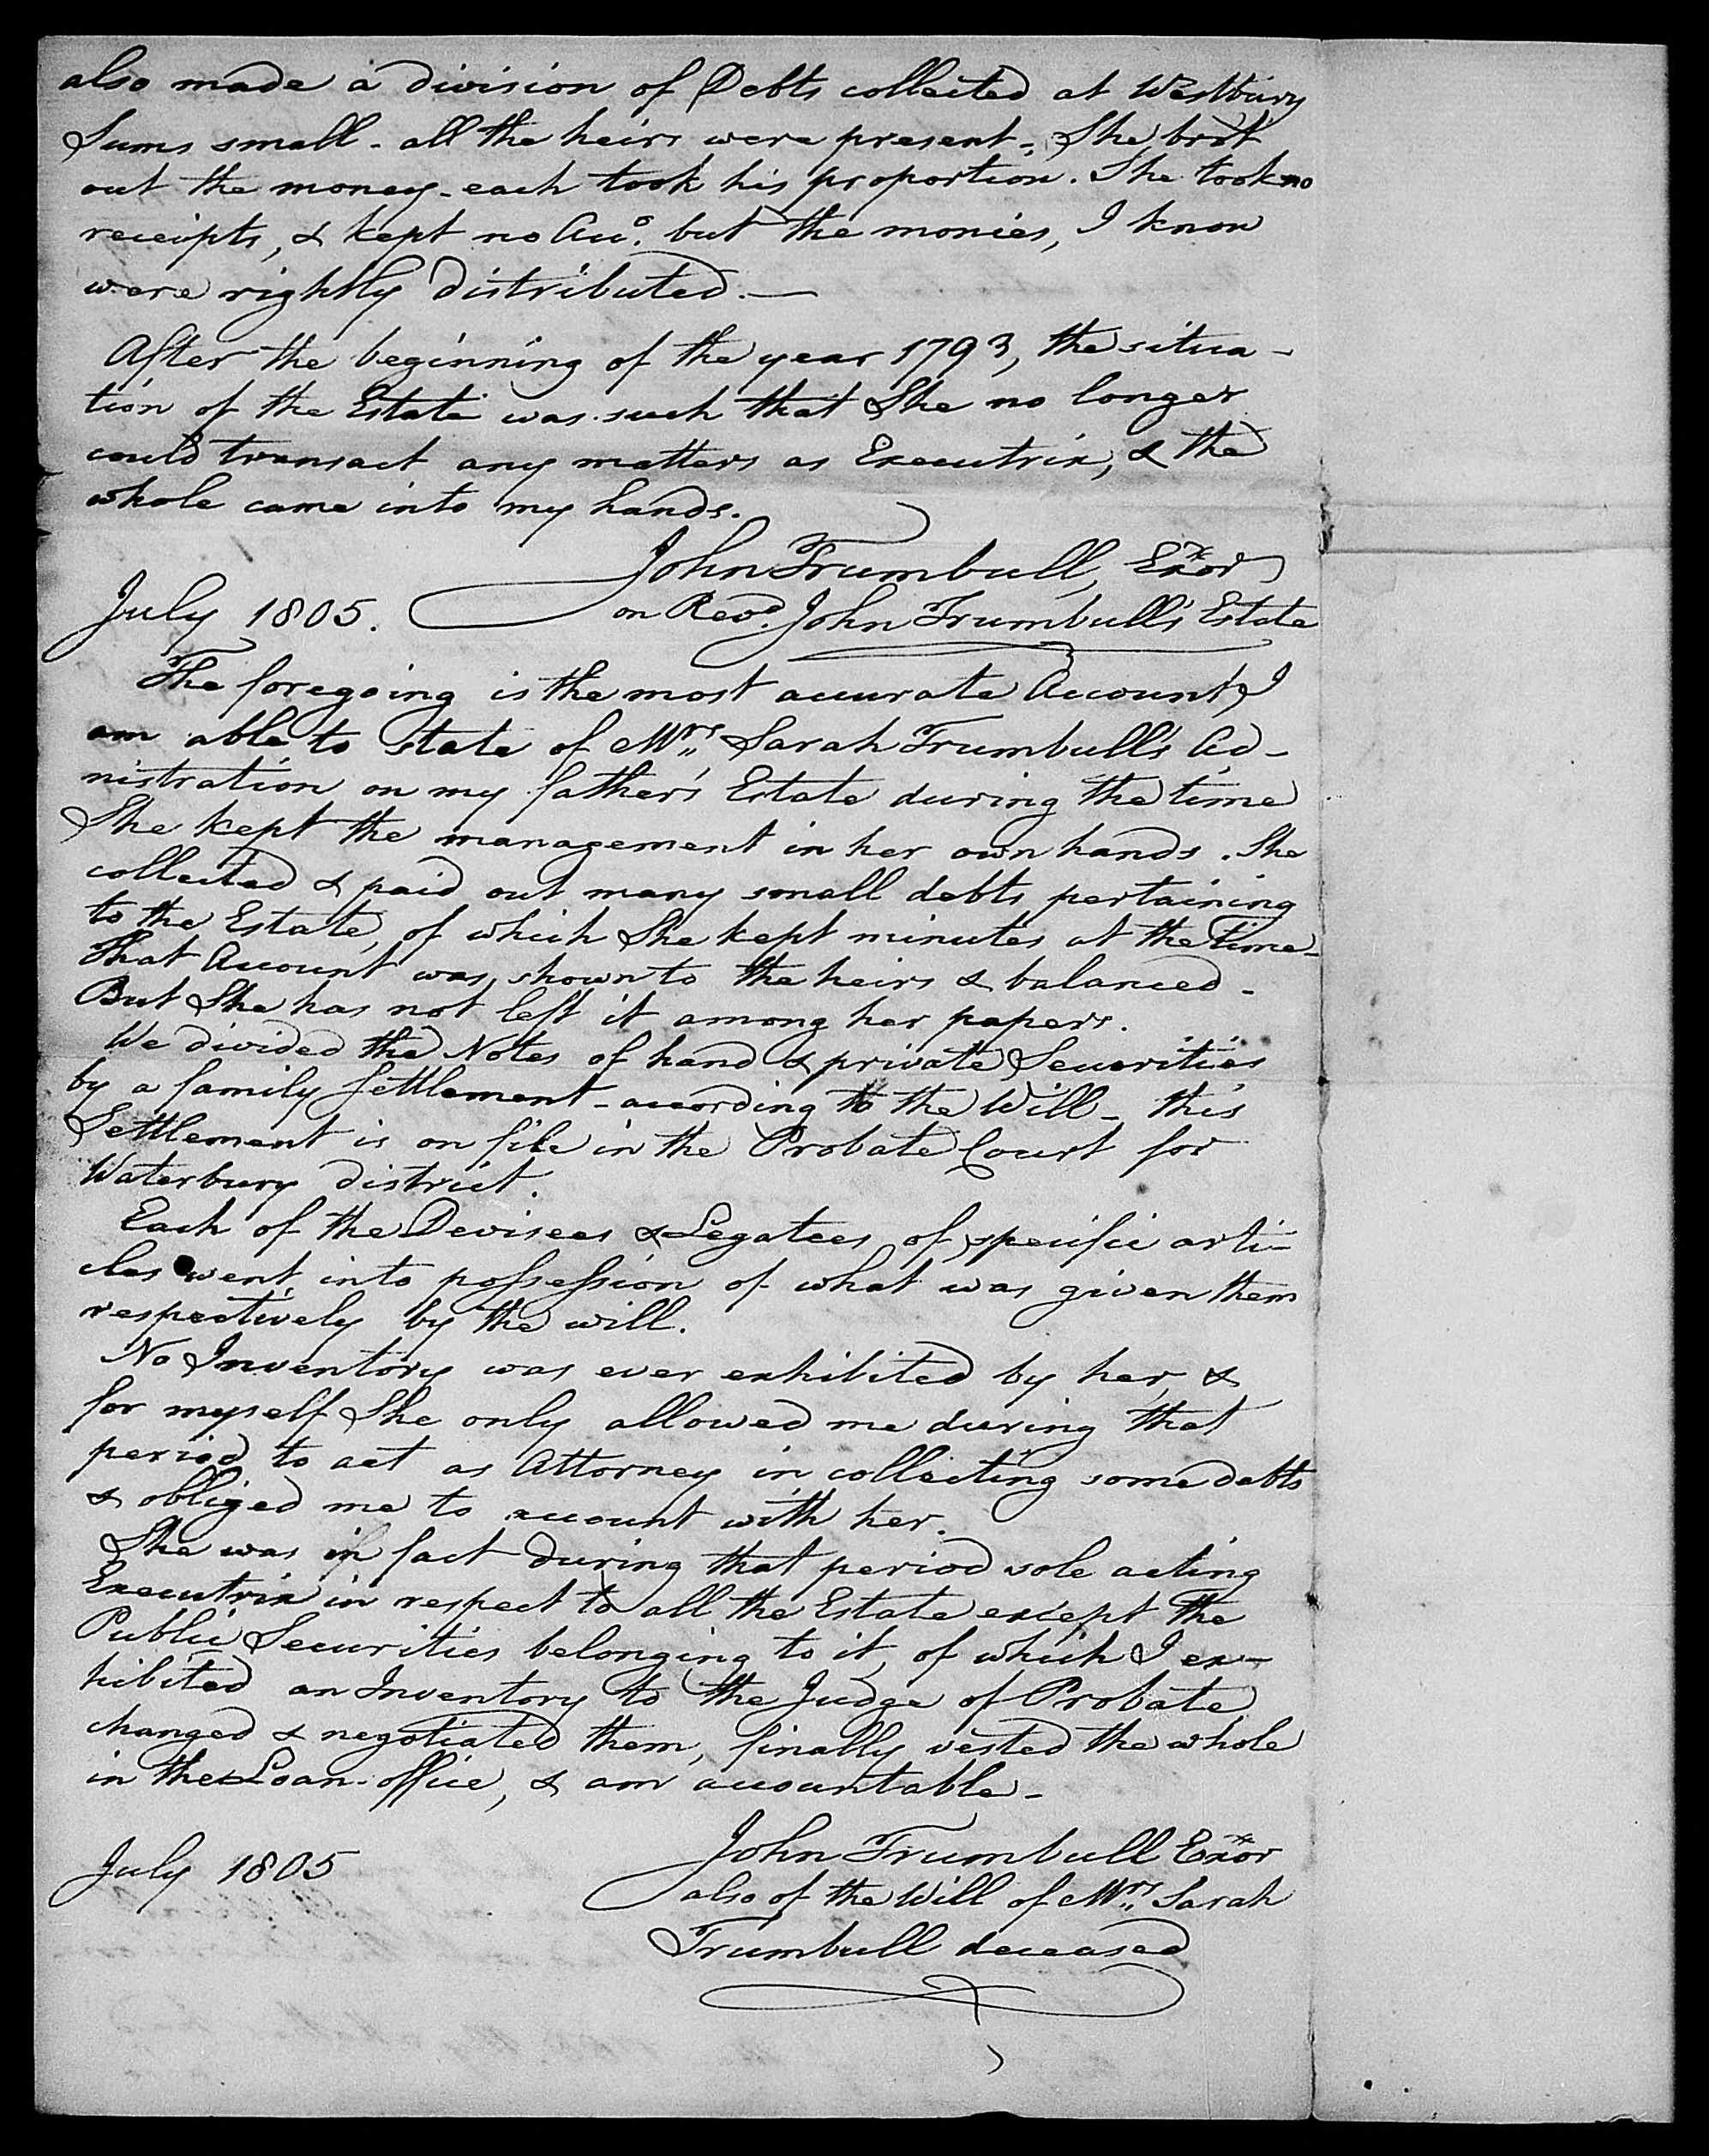 also made a division of Debts collected at Westbury
Sums small - all the heirs were present - She bro't
out the money - each took his proportion. She took no
receipts, & kept no Acco. but the monies, I know
were rightly distributed. —
After the beginning of the year 1793, the situa-
tion of the Estate was such that She no longer
could transact any matters as Executrix, & the
whole came into my hands.
John Trumbull, Exor
July 1805. on Revd. John Trumbull's Estate
The foregoing is the most accurate Account I
am able to state of Mrs. Sarah Trumbull's Ad-
nistration on my father's Estate during the time
She kept the management in her own hands. She
collected & paid out many small debts pertaining
to the Estate, of which She kept minutes at the Time -
That Account was shown to the heirs & balanced -
But She has not left it among her papers.
We divided the Notes of hand & private Securities
by a family settlement - according to the Will - this
Settlement is on file in the Probate Court for
Waterbury district.
Each of the Devisees & Legatees of specific arti-
cles went into possession of what was given them
respectively by the will.
No Inventory was ever exhibited by her, &
for myself She only allowed me during that
period to act as Attorney in collecting some debts
& obliged me to account with her.
She was in fact during that period sole acting
Executrix in respect to all the Estate except the
Public Securities belonging to it, of which I ex-
hibited an Inventory to the Judge of Probate,
changed & negotiated them, finally vested the whole
in the Loan-office, & am accountable -
July 1805 John Trumbull Exor
also of the Will of Mrs. Sarah
Trumbull deceased